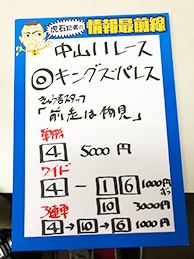 虎石記者の
情報最前線
中山11レース
◎キングズパレス
きゅう舎スタッフ
「前走は物見」
単勝
4 5000円
ワイド
4-16 1000円
10 3000円
3連単
4→10→6 1000円